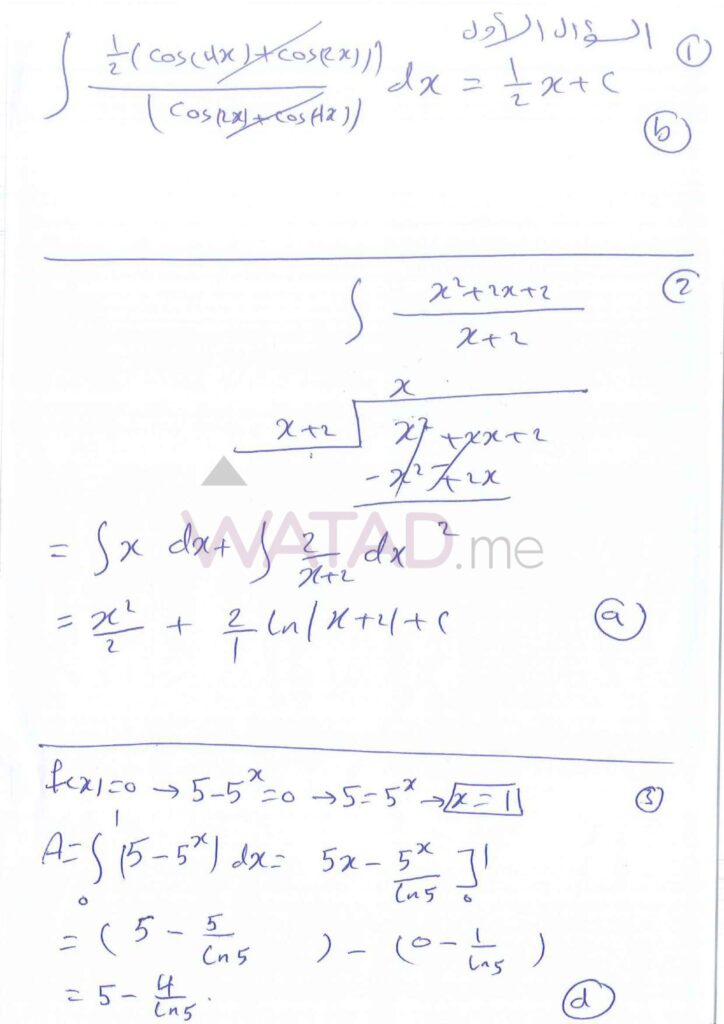 السؤال الأول ①
∫ ½(cos(4x)+cos(2x)) / (cos(2x)+cos(4x)) dx = ½x+c
ⓑ
② ∫ x²+2x+2 / x+2
x
x+2 | x²+2x+2
-x²+2x
2
= ∫x dx + ∫ 2/x+2 dx
WATAD.me
= x²/2 + 2/1 ln|x+2|+c ⓐ
f(x)=0 → 5-5ˣ=0 → 5=5ˣ → x=1 ③
A=∫₀¹ (5-5ˣ) dx = 5x - 5ˣ/ln5 ]₀¹
= (5 - 5/ln5) - (0 - 1/ln5)
= 5 - 4/ln5. ⓓ